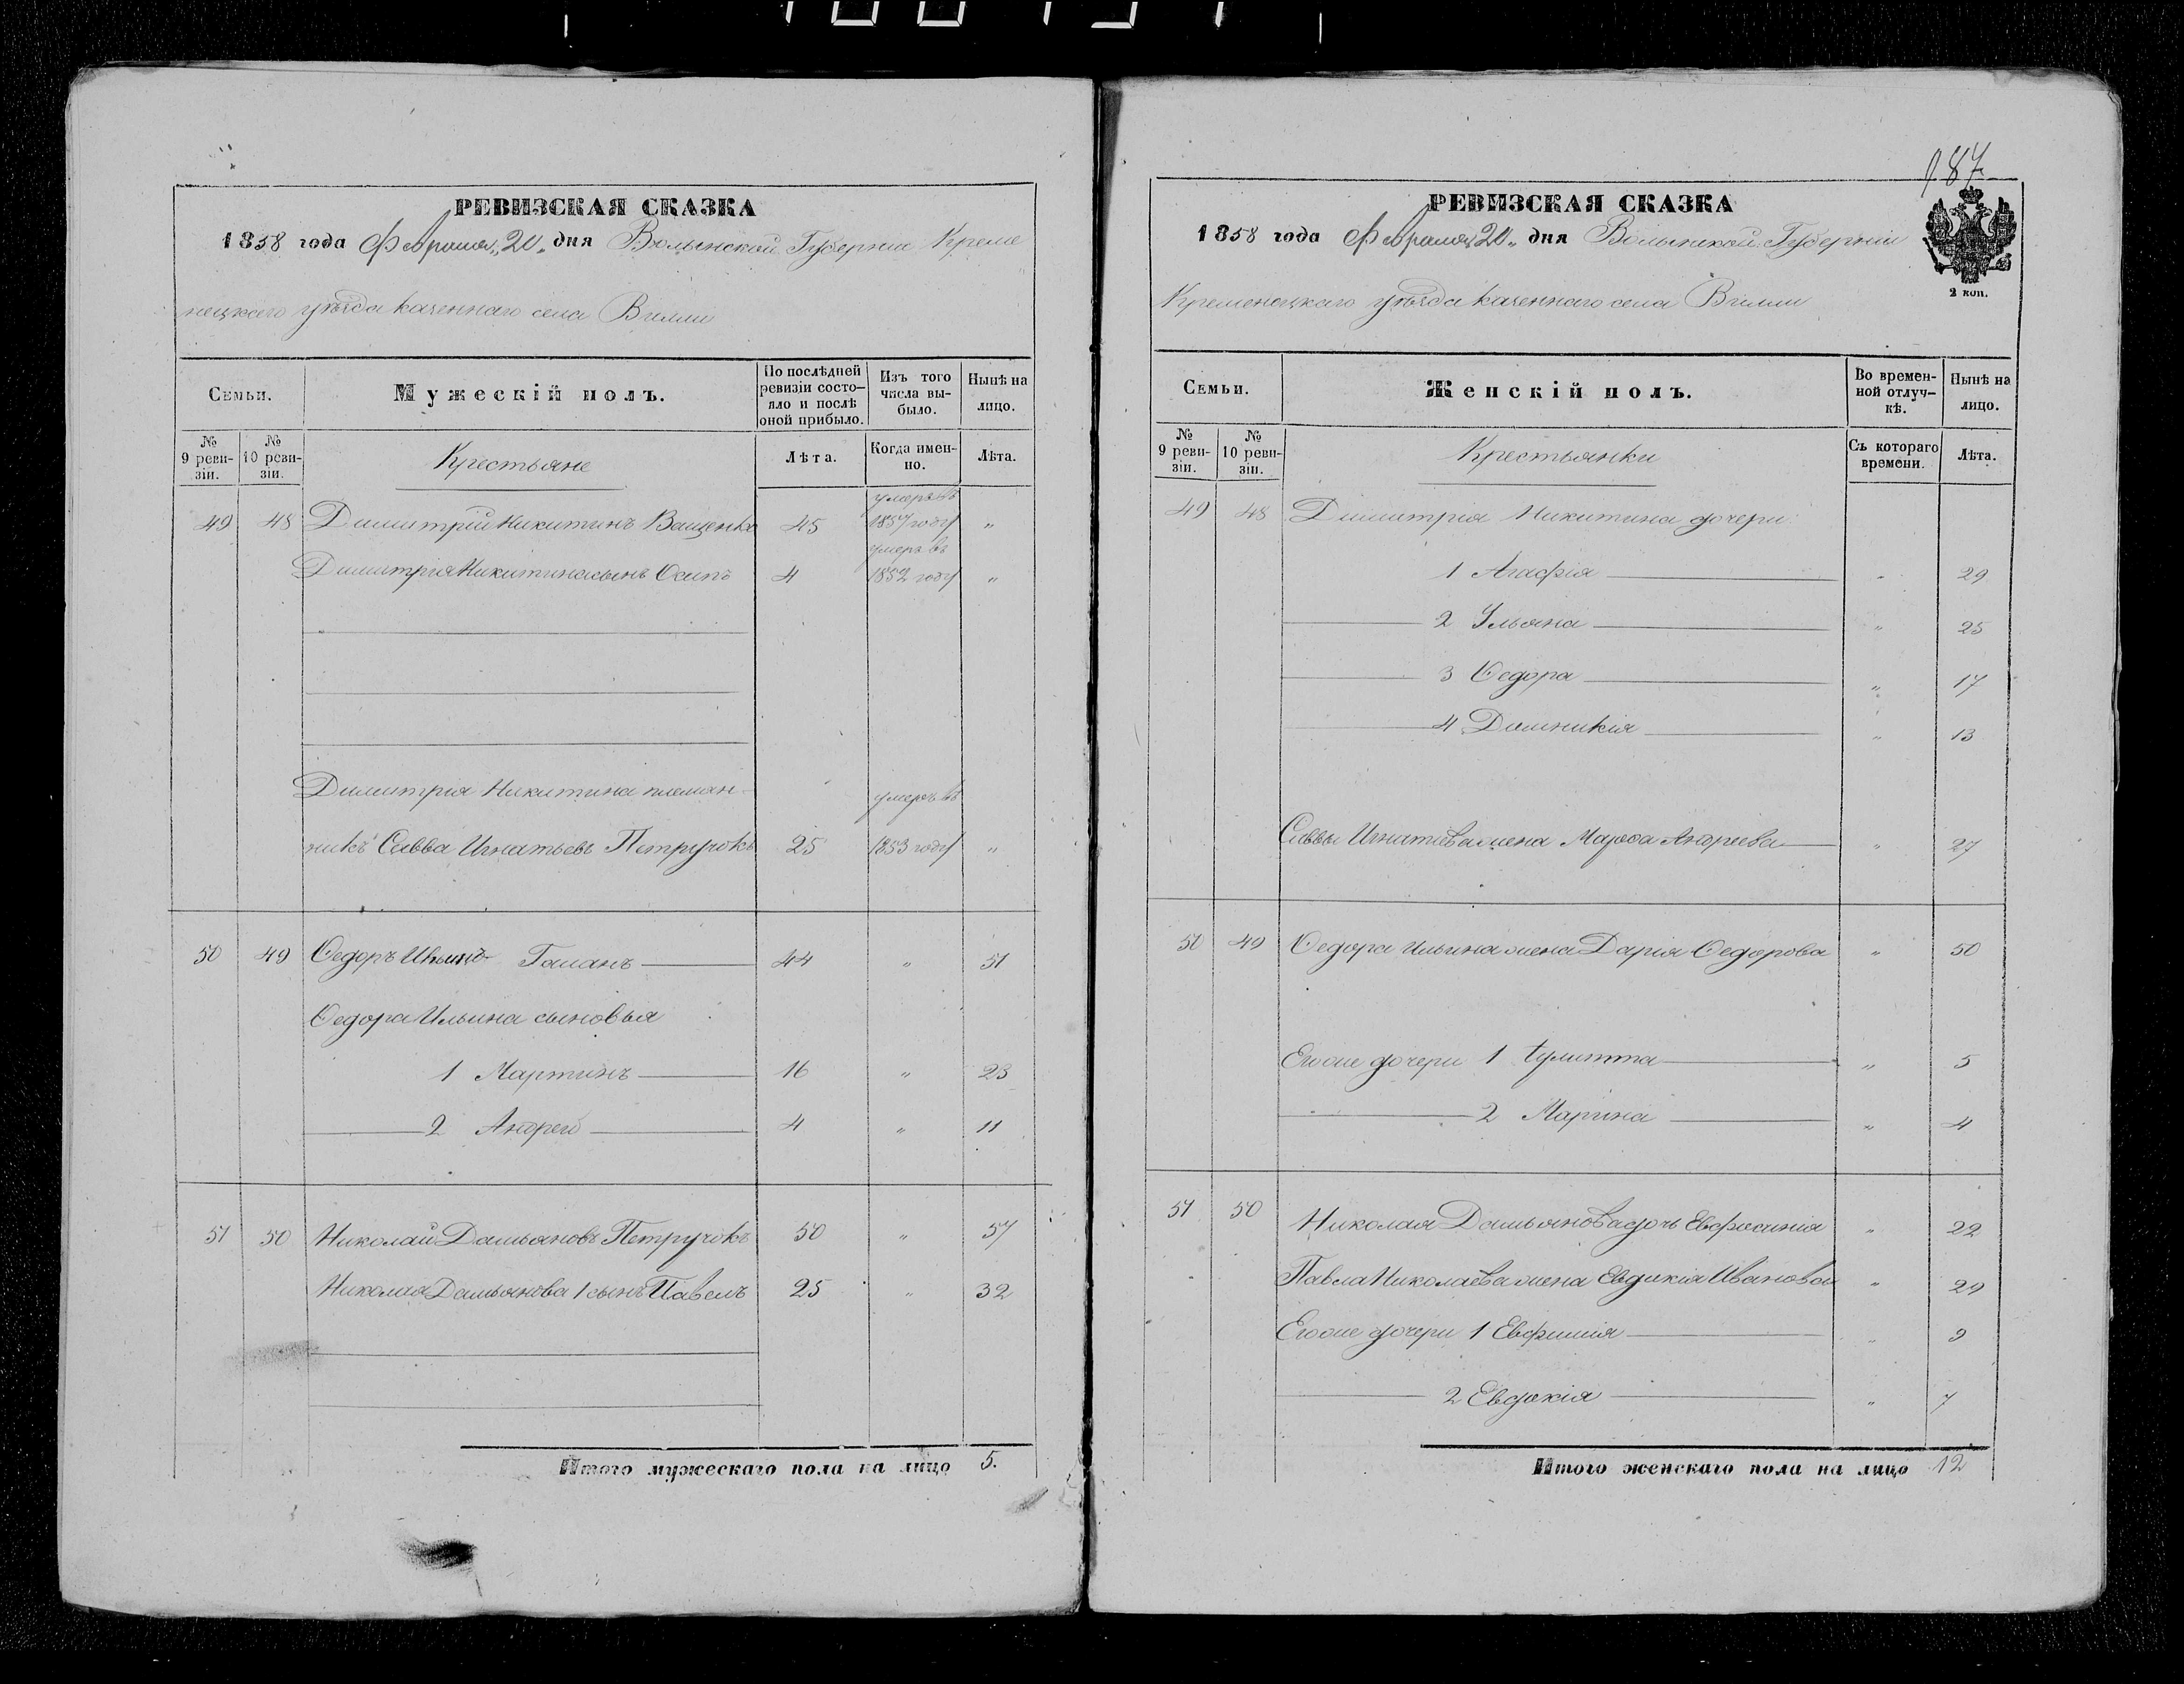 РЕВИЗСКАЯ СКАЗКА
1858 года Февраля „20„ дня Волынской Губерніи Креме
нецкаго уѣзда казеннаго села Виліи
Семьи.
Мужескій полъ.
По послѣдней ревизіи состо-яло и послѣ оной прибыло.
Изъ того числа вы-было.
Нынѣ на лицо.
№ 9 реви-зіи.
№ 10 реви-зіи.
Крестьяне
Лѣта.
Когда имен-но.
Лѣта.
49 48 Димитрій Никитинъ Ващенко 45 умеръ въ 1857 году „
Димитрія Никитина сынъ Осипъ 4 умеръ въ 1852 году „
Димитрія Никитина племян-
никъ Савва Игнатьевъ Петручокъ 25 умеръ въ 1853 году „
50 49 Ѳедоръ Ильинъ 44 „ 51
Ѳедора Ильина сыновья
1 Мартинъ 16 „ 23
2 Андрей 4 „ 11
51 50 Николай Дамьяновъ Петручокъ 50 „ 57
Николая Дамьянова 1 сынъ Павелъ 25 „ 32
Итого мужескаго пола на лицо 5.
187
РЕВИЗСКАЯ СКАЗКА
1858 года Февраля „20„ дня Волынской Губерніи
Кременецкаго уѣзда казеннаго села Виліи
2 коп.
Семьи.
Женскій полъ.
Во времен-ной отлуч-кѣ.
Нынѣ на лицо.
№ 9 реви-зіи.
№ 10 реви-зіи.
Крестьянки
Съ котораго времени.
Лѣта.
49 48 Димитрія Никитина дочери
1 Агафія „ 29
2 Ульяна „ 25
3 Ѳедора „ 17
4 Домникія „ 13
Саввы Игнатіева жена Марфа Андреева „ 27
50 49 Ѳедора Ильина жена Дарія Ѳедорова „ 50
Его же дочери 1 Іулитта „ 5
2 Марина „ 4
51 50 Николая Дамьянова дочь Евфросинія „ 22
Павла Николаева жена Евдокія Иванова „ 29
Его же дочери 1 Евфимія „ 9
2 Евдокія „ 7
Итого женскаго пола на лицо 12